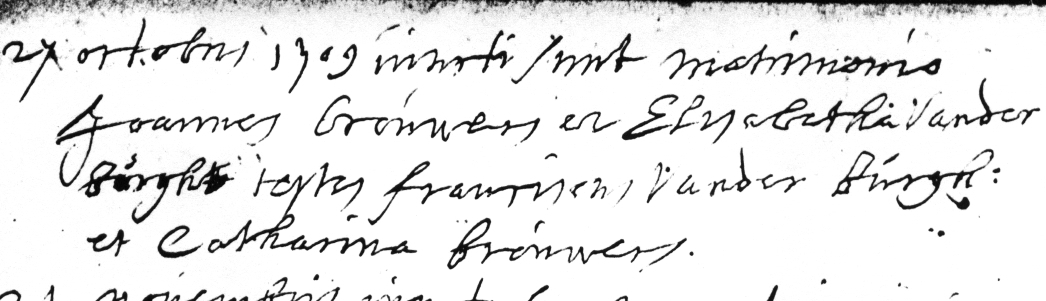 27 octobris 1709 iuncti sunt matrimonio
Joannes brouwers et Elysabetha Vander
Burght testes franciscus Vander Burgh:
et Catharina brouwers.
novembris